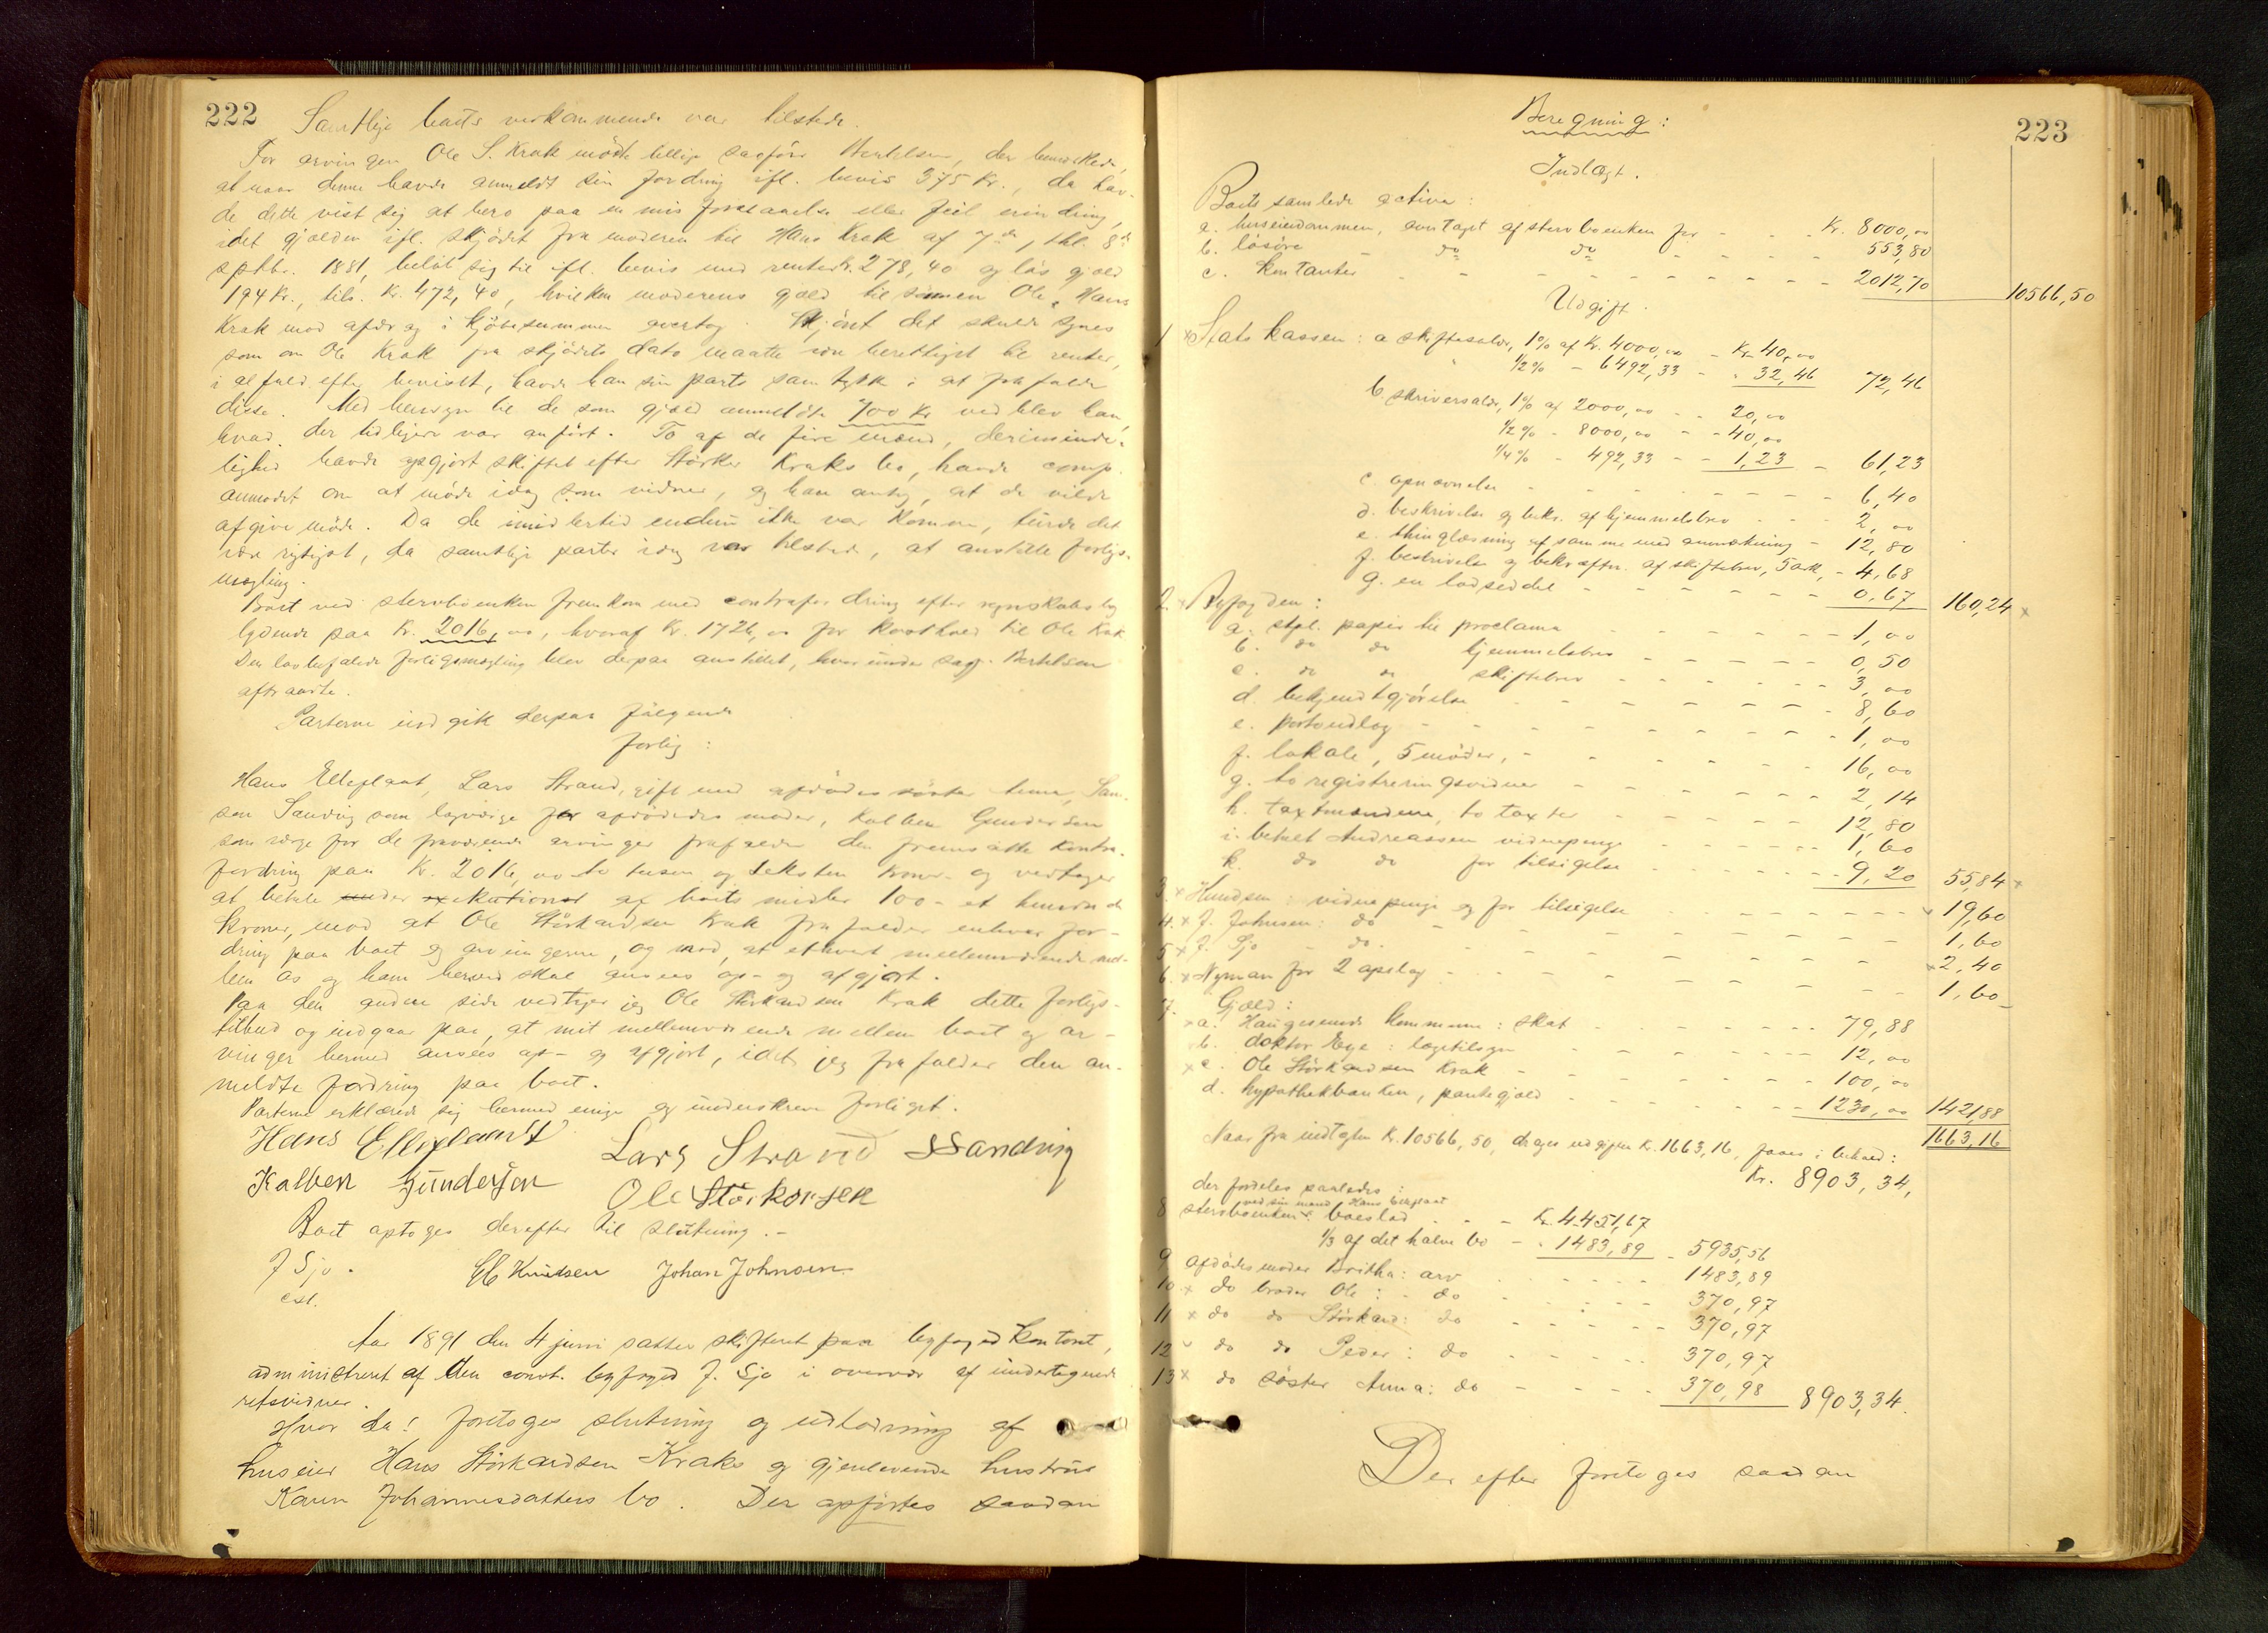 222
Samtlige boets vedkommende var tilstede.
For arvingen Ole S. Krak mödte tillige sagförer Berthelsen, der bemærkede,
at naar denne havde anmeldt sin fordring ifl. bevis 375 Kr., da hav-
de dette vist sig at bero paa en misforstaaelse eller feil erindring,
idet gjælden ifl. skjödet fra moderen til Hans Krak af 7de, thl. 8de
septbr. 1881, belöb sig til ifl. bevis med renter Kr. 278,40 og lös gjæld
194 Kr., tils. Kr. 472,40, hvilken moderens gjæld til sönnen Ole, Hans
Krak mod afdrag i kjöbesummen overtog. Skjönt det skulde synes
som om Ole Krak fra skjödets dato maatte være berettiget til renter,
i al fald efter beviset, havde han sin parts samtykke i at frafalde
disse. Med hensyn til de som gjæld anmeldte 700 Kr ved blev han,
hvad der tidligere var anfört. To af de fire mænd, der i mindе-
lighed havde opgjort skiftet efter Störker Kraks bo, havde comp.
anmodet om at möde idag som vidner, og han antog, at de vilde
afgive möde. Da de imidlertid endnu ikke var komne, turde det
være rigtigst, da samtlige parter idag var tilstede, at anstille forligs-
mægling.
Boet ved stervboenken fremkom med contrafordring efter regnskab
lydende paa Kr. 2016,00, hvoraf Kr. 1726,00 for kosthold til Ole Krak
Den lovbefalede forligsmægling blev derpaa anstillet, hvorunder sagf. Berthelsen
aftraadte.
Parterne indgik derpaa fölgende
forlig:
Hans Elleflaat, Lars Strand, gift med afdödes söster Anna, Sam-
son Sandvig som lagværge for afdödes moder, Kolben Gundersen
som værge for de fraværende arvinger frafalder den fremsatte kontra-
fordring paa Kr. 2016,00 to tusen og seksten kroner og vedtager
at betale under exekutioner af boets midler 100 - et hundrede
kroner, mod at Ole Störkardsen Krak frafalder enhver for-
dring paa boet og arvingerne, og mod, at ethvert mellemværende mel-
lem os og ham herved skal ansees op- og afgjort.
Paa den anden side vedtager jeg Ole Störkardsen Krak dette forligs-
tilbud og indgaar paa, at mit mellemværende mellem boet og ar-
vinger hermed ansees op- og afgjort, idet jeg frafalder den an-
meldte fordring paa boet.
Parterne erklærede sig hermed enige og underskrev forliget.
Hans Elleflaant Lars Strand SSandvig
Kolben Gundersen Ole Störkorsen
Boet optoges derefter til slutning. -
J Sjo. Knudsen Johan Johnsen
cst.
Aar 1891 den 4 juni sattes skifteret paa byfogedkontoret,
administreret af den const. byfoged J. Sjo i overvær af undertegnede
retsvidner.
Hvor da! foretoges slutning og udlodning af
huseier Hans Störkardsen Kraks og gjenlevende hustrus
Karen Johannesdatters bo. Der opförtes saadan
223
Beregning:
Indtægt.
Boets samlede activa:
a. huseiendommen, overtaget af stervboenken for - - Kr. 8000,00
b. lösöre do do - - - 553,80
c. kontanter - - - 2012,70 10566,50
Udgift.
1 x Statskassen: a skiftesalær, 1% af Kr. 4000,00 - Kr 40,00
1/2% - 6492,33 - - 32,46 72,46
b skriversalær, 1% af 2000,00 - - 20,00
1/2% - 8000,00 - - 40,00
1/4% - 492,33 - - 1,23 - 61,23
c. opnævnelse - - - 6,40
d. beskrivelse og bekr. af hjemmelsbrev - - - 2,00
e. thinglæsning af samme med anmærkning - 12,80
f. beskrivelse og bekræftn. af skiftebrev, 5 ark, - 4,68
g. en lodseddel - - - 0,67 160,24 x
2 x Byfogden:
a. stpl. papir til proclama - - - 1,00
b. do do hjemmelsbrev - - - 0,50
c. do do skiftebrev - - - 3,00
d. bekjendtgjörelse - - - 8,60
e. portoudlæg - - - 1,00
f. lokale, 5 möder, - - - 16,00
g. to registreringsvidner - - - 2,14
h. taxtmændene, to taxter - - - 12,80
i. betalt Andreassen vidnepenge - - - 1,60
k. do do for tilsigelse - - - 9,20 55,84 x
3. x Knudsen: vidnepenge og for tilsigelse - - - 19,60
4. x J. Johnsen: do - - - 1,60
5 x J. Sjo - do. - - - x 2,40
6. x Nyman for 2 opslag - - - 1,60
7. Gjæld:
x a. Haugesunds kommune: skat - - - 79,88
b. doktor Eye: lægetilsyn - - - 12,00
x c. Ole Störkardsen Krak - - - 100,00
d. hypothekbanken, pantegjæld - - - 1230,00 1421,88
1663,16
Naar fra indtægten Kr. 10566,50, drages udgiften Kr. 1663,16, faaes i behold:
Kr. 8903,34,
der fordeles saaledes:
ved sin mand Hans Elleflaat
8 stervboenken: boeslod - - - Kr. 4451,67
1/3 af det halve bo - - 1483,89 - 5935,56
9 afdödes moder Britha: arv - - - 1483,89
10 x do broder Ole: - do - - - 370,97
11 x do do Störkard: do - - - 370,97
12 do do Peder: do - - - 370,97
13 x do söster Anna: do - - - 370,98 8903,34.
Derefter foretoges saadan